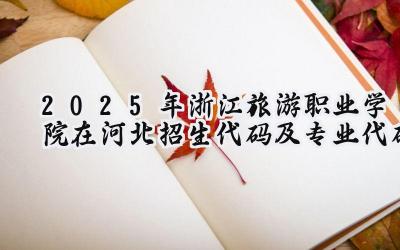 2025年浙江旅游职业学
院在河北招生代码及专业代码